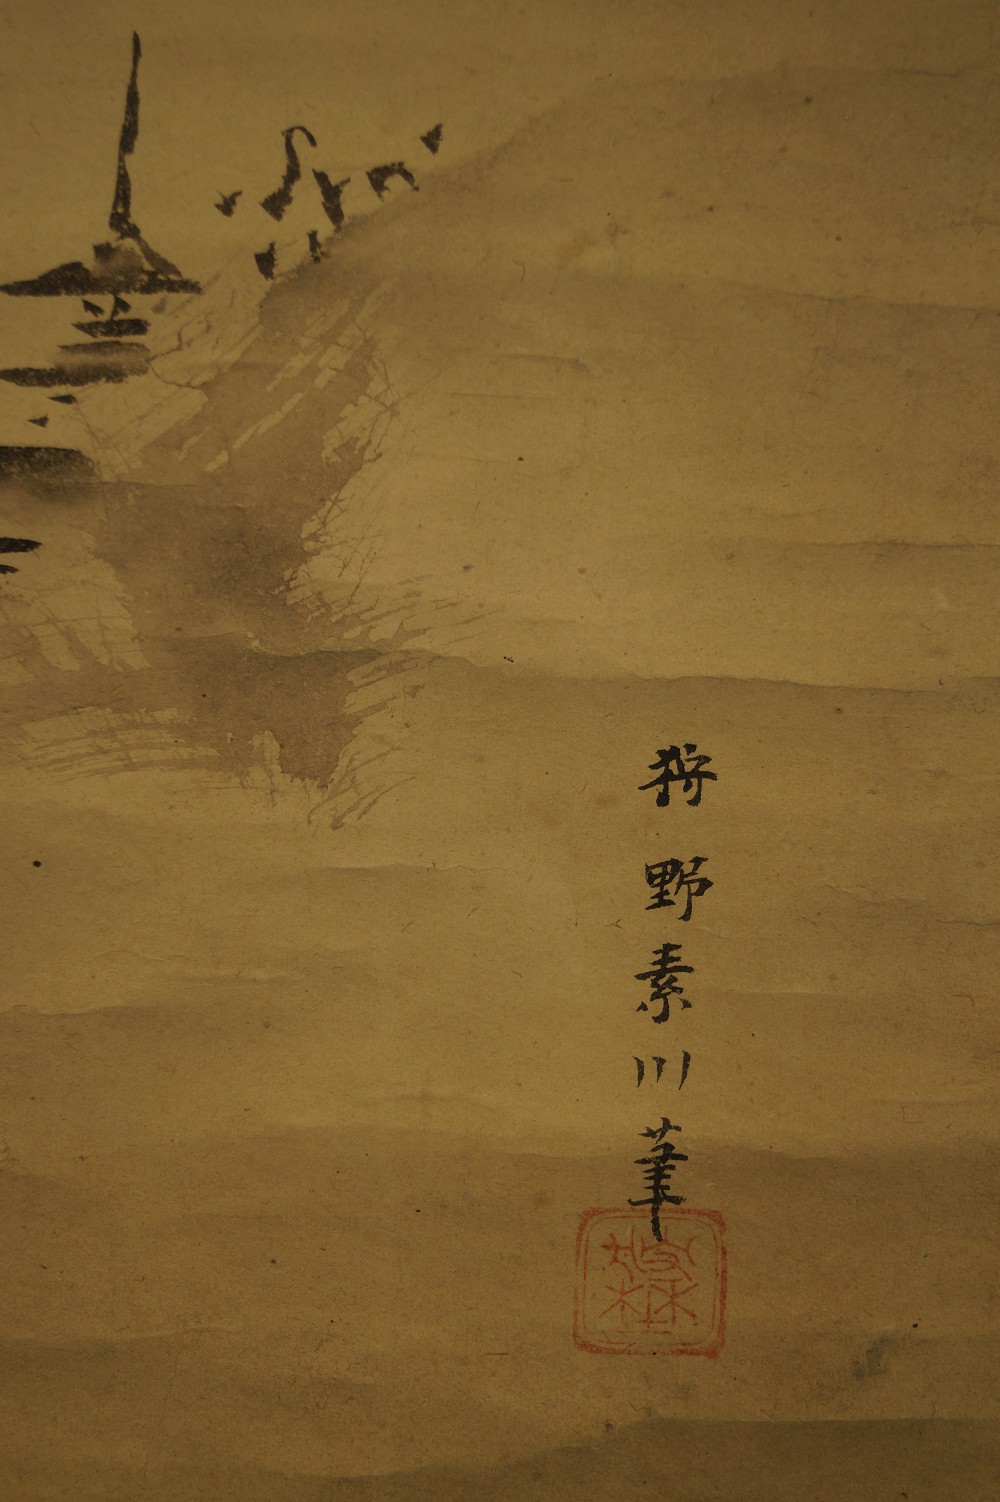 狩野素川筆